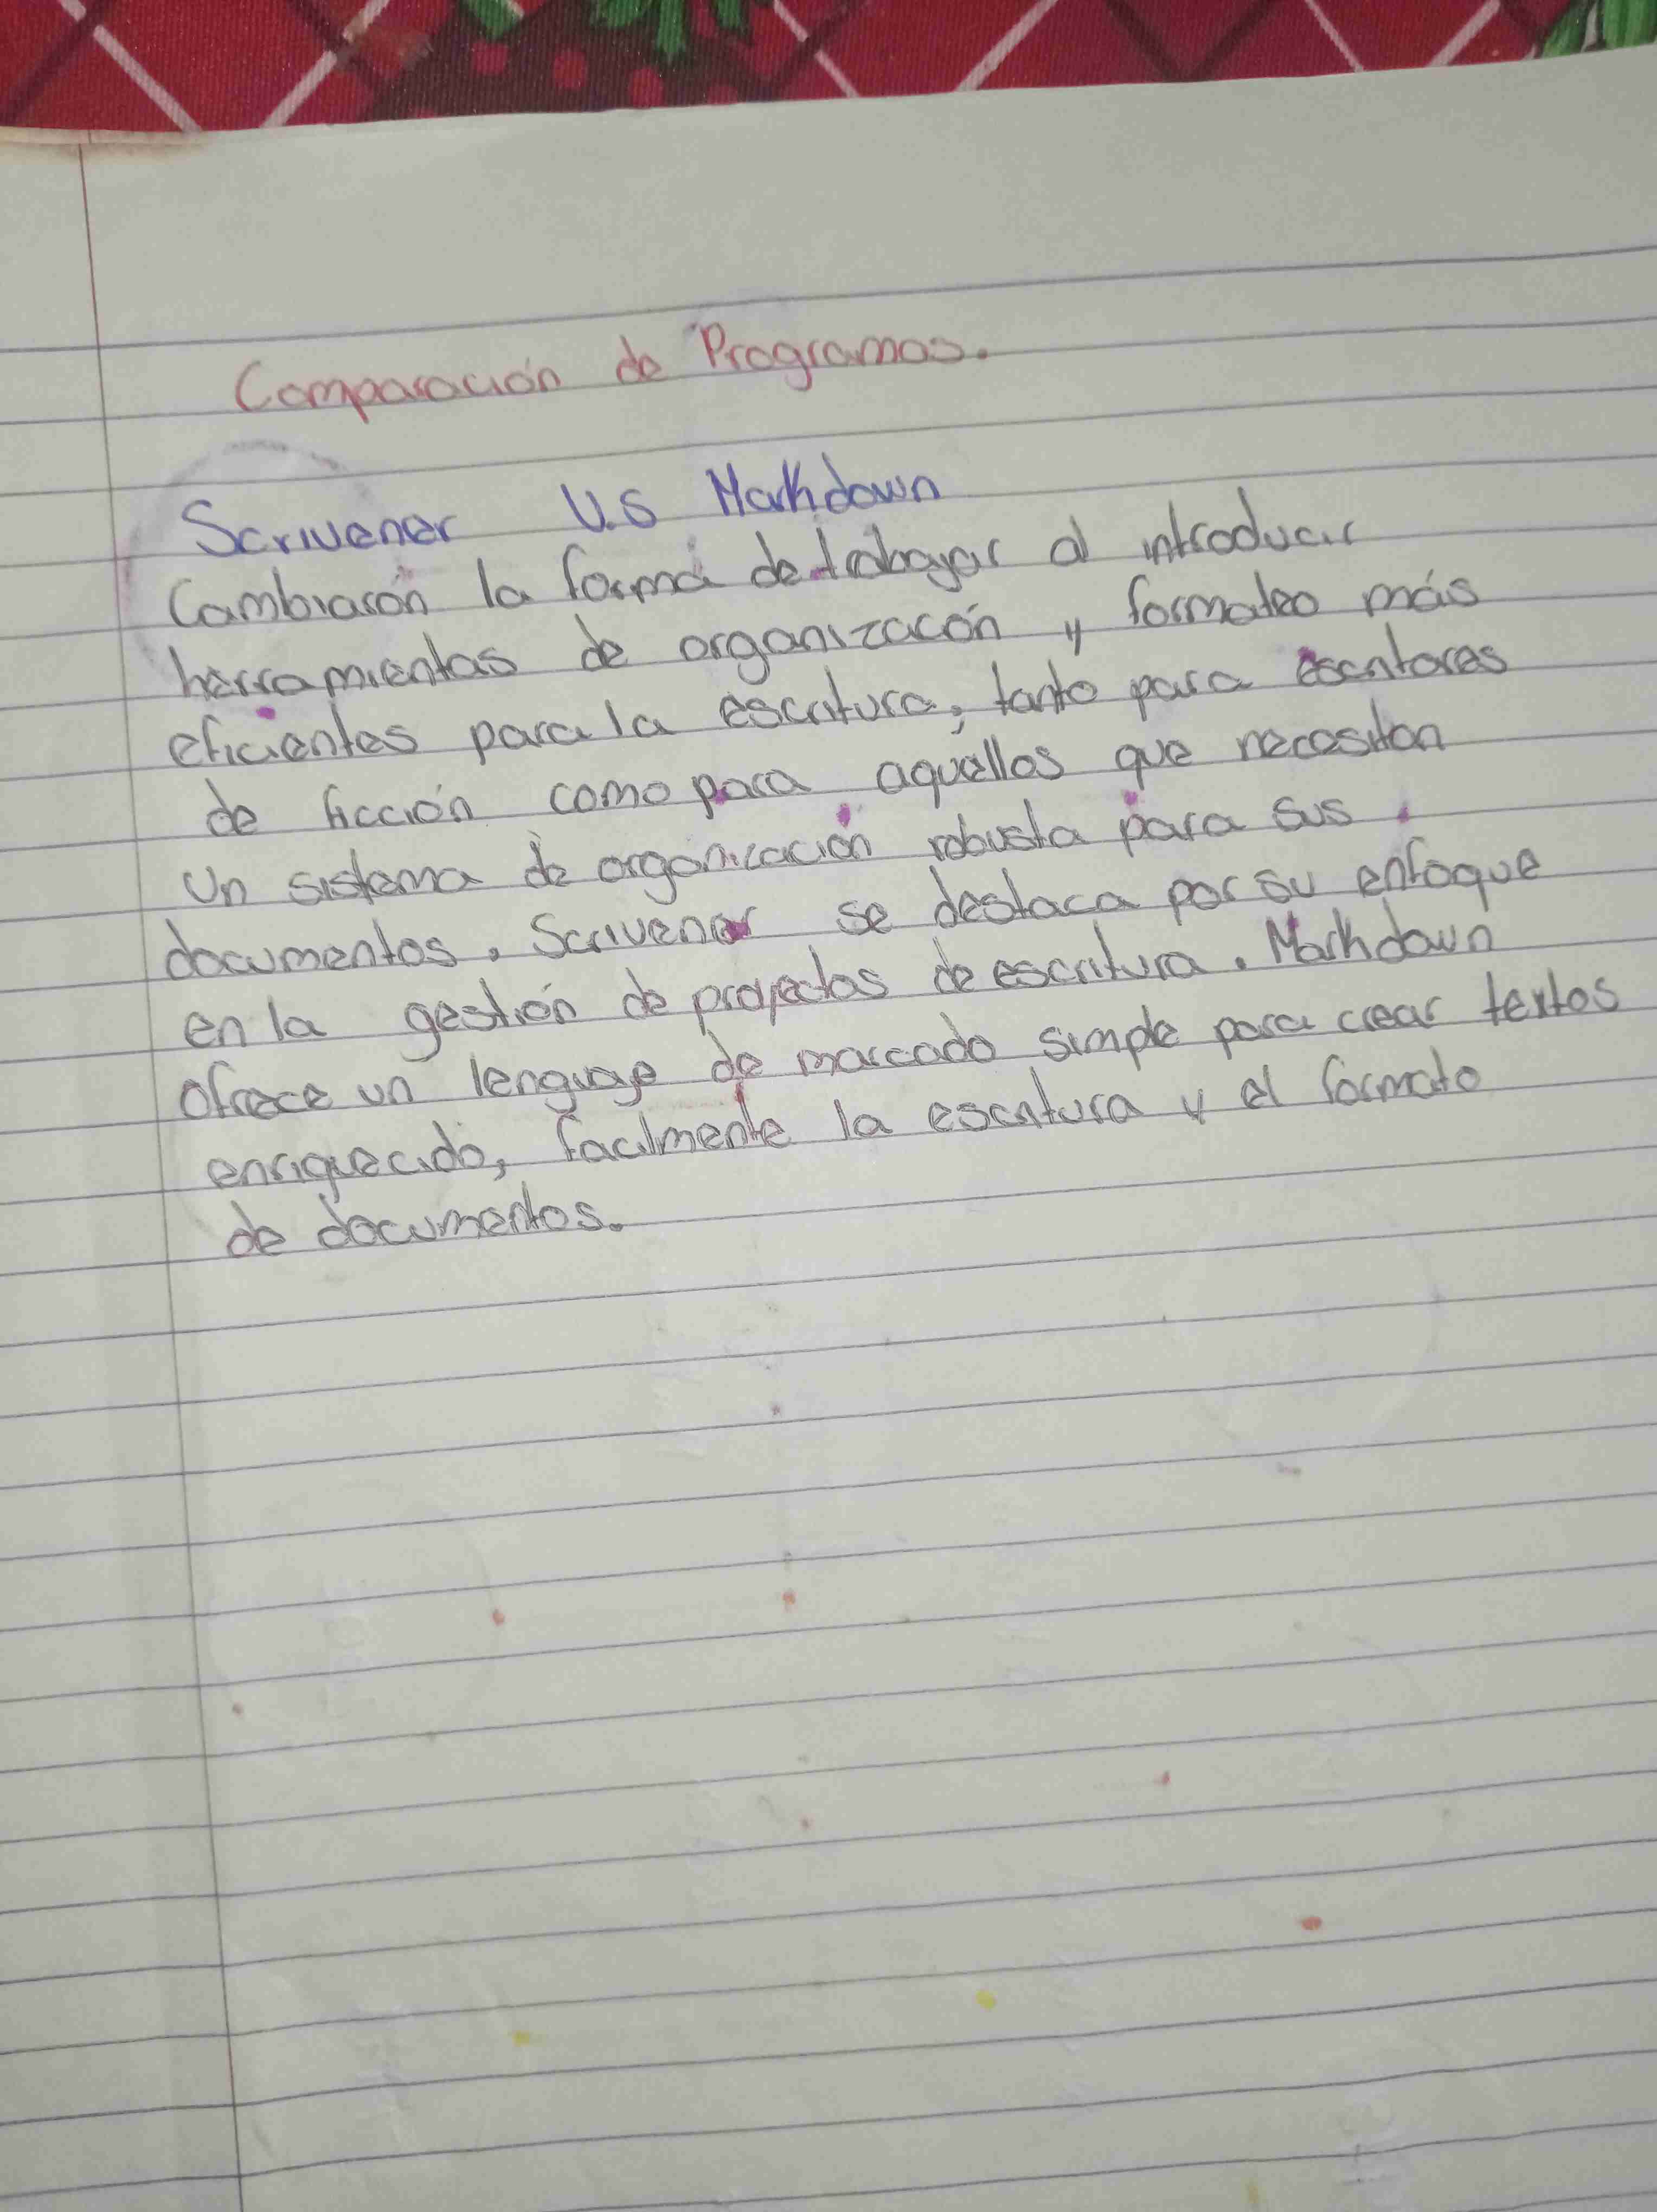 Comparación de Programas.
Scrivener V.S Markdown
Cambiarón la forma de trabajar al introducir
herramientas de organizacón y formateo más
eficientes para la escritura, tanto para escritores
de ficción como para aquellos que necesitan
un sistema de organización robusta para sus
documentos. Scrivener se destaca por su enfoque
en la gestión de proyectos de escritura. Markdown
ofrece un lenguaje de marcado simple para crear textos
enriquecido, facilmente la escritura y el formato
de documentos.